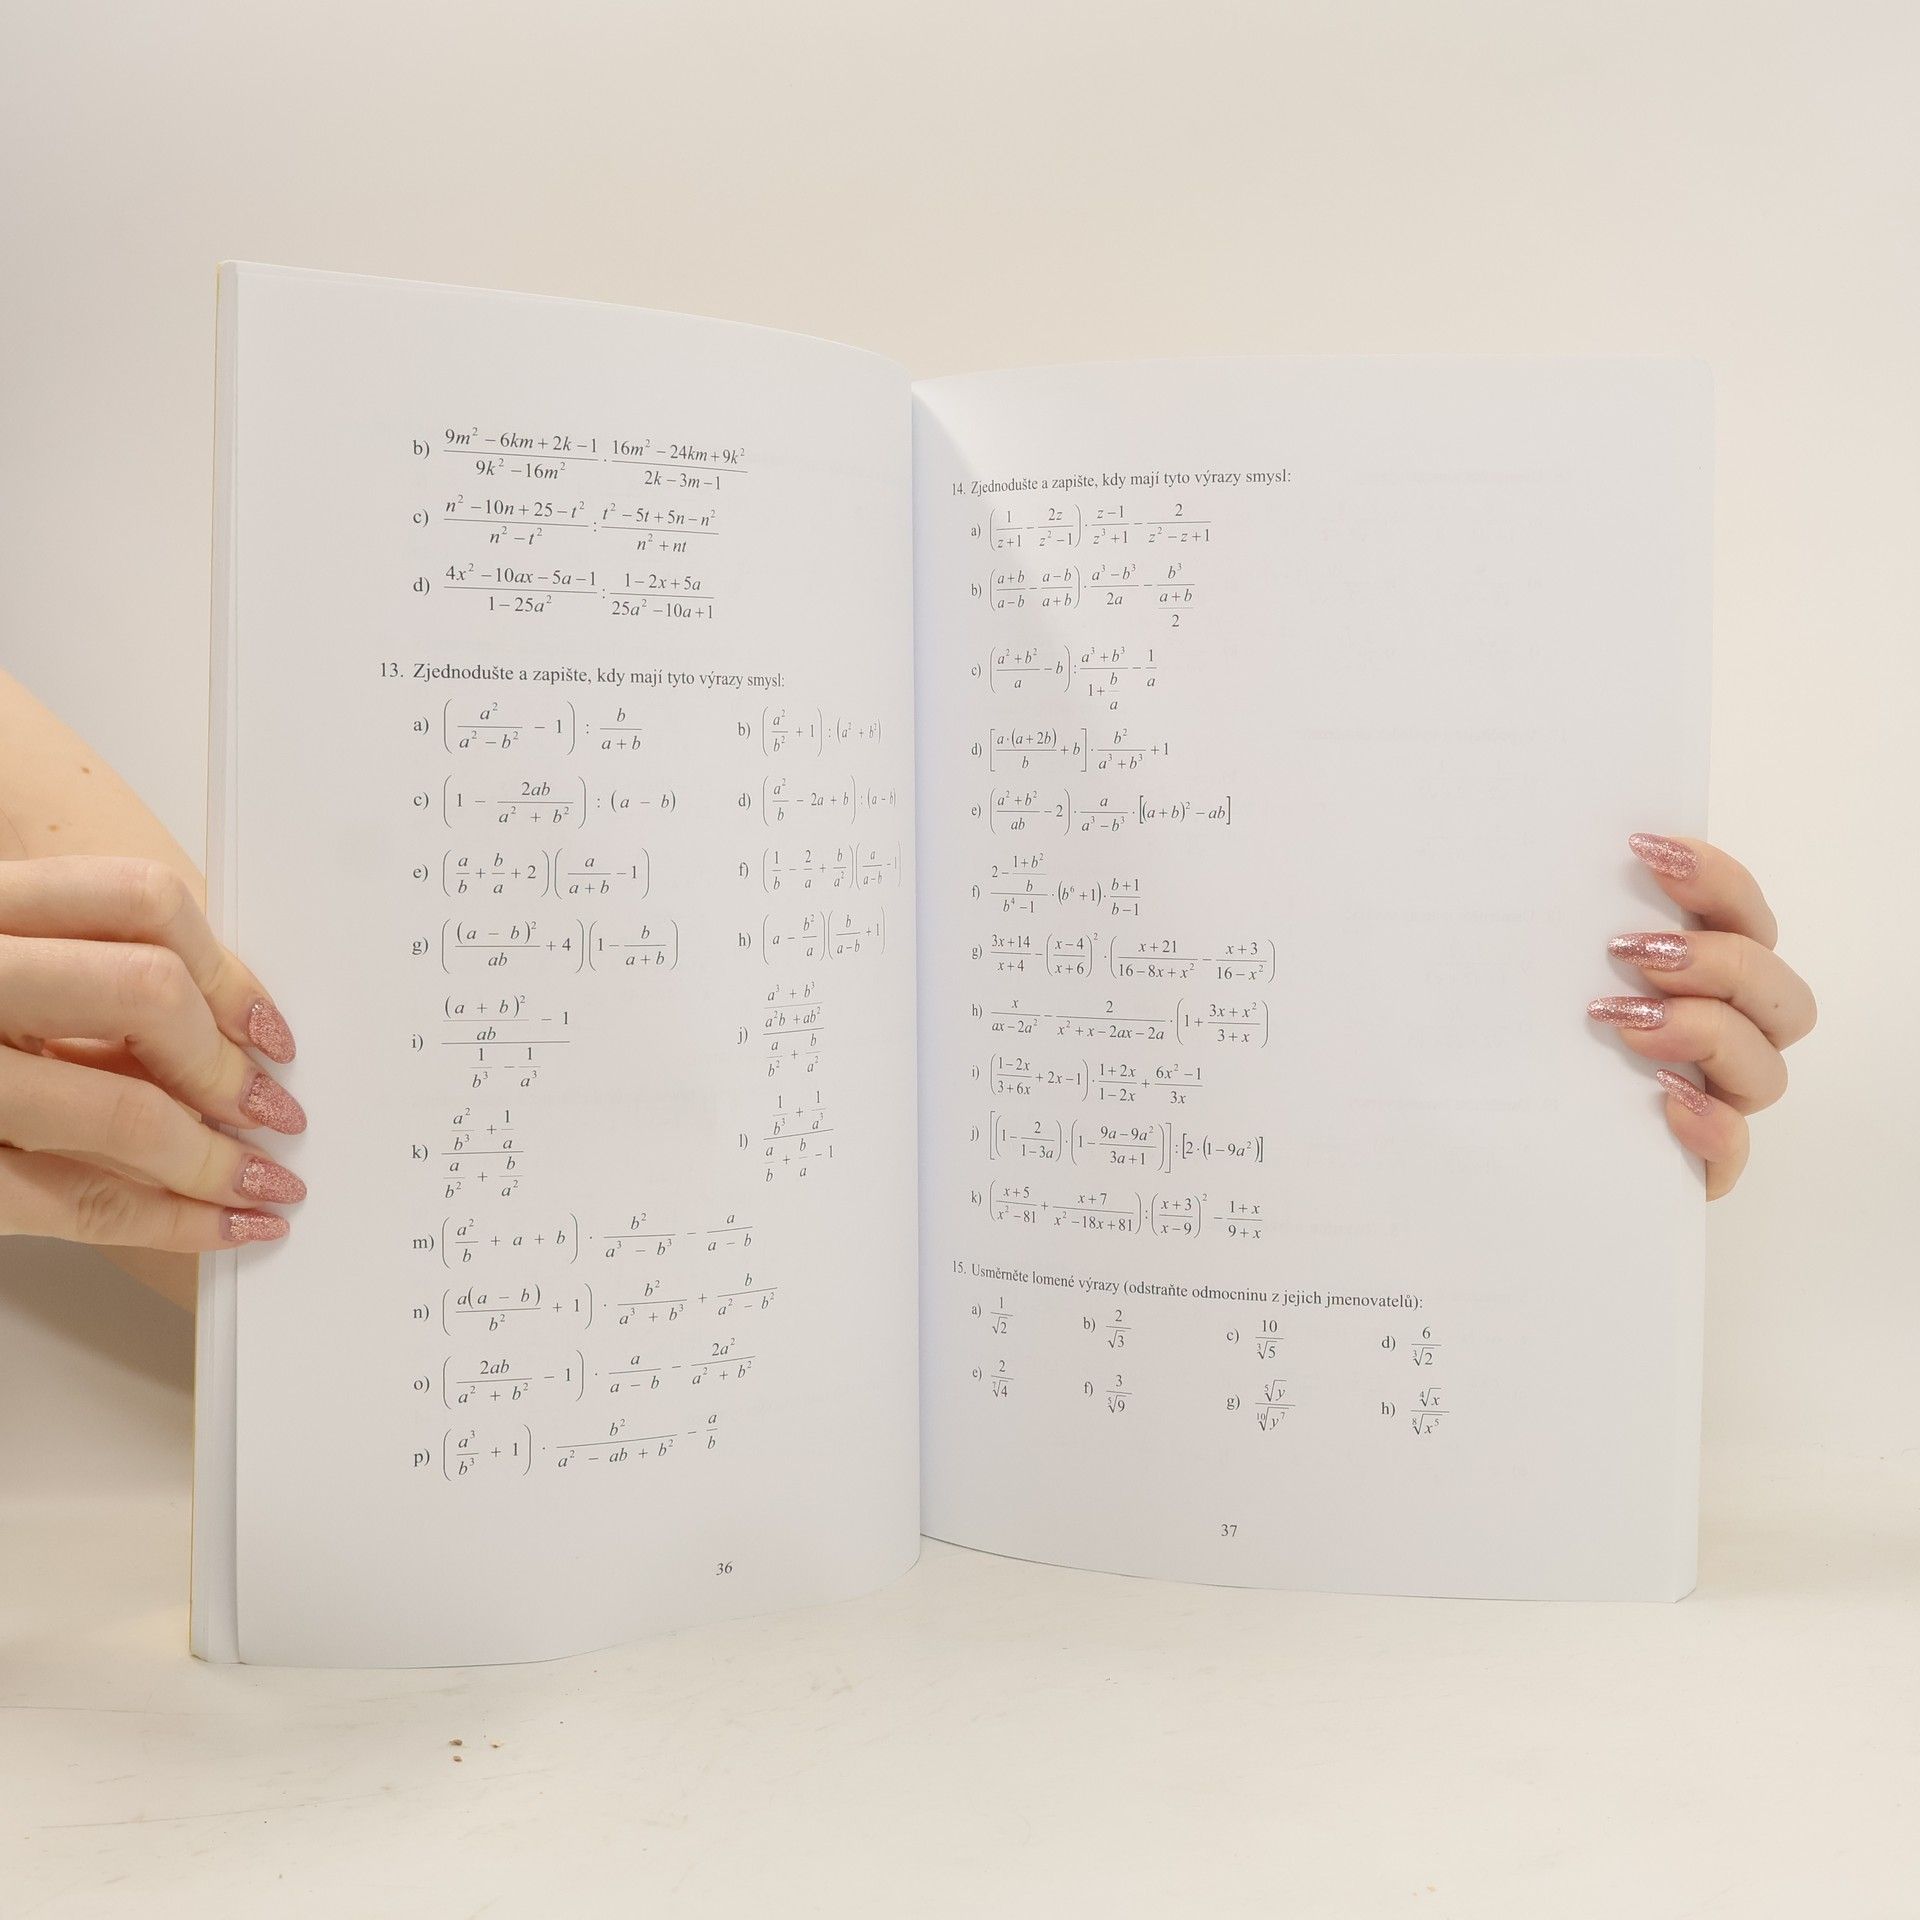 b) \frac{9m^2 - 6km + 2k - 1}{9k^2 - 16m^2} \cdot \frac{16m^2 - 24km + 9k^2}{2k - 3m - 1}
c) \frac{n^2 - 10n + 25 - t^2}{n^2 - t^2} : \frac{t^2 - 5t + 5n - n^2}{n^2 + nt}
d) \frac{4x^2 - 10ax - 5a - 1}{1 - 25a^2} : \frac{1 - 2x + 5a}{25a^2 - 10a + 1}
13. Zjednodušte a zapište, kdy mají tyto výrazy smysl:
a) \left(\frac{a^2}{a^2 - b^2} - 1\right) : \frac{b}{a + b} b) \left(\frac{a^2}{b^2} + 1\right) : (a^2 + b^2)
c) \left(1 - \frac{2ab}{a^2 + b^2}\right) : (a - b) d) \left(\frac{a^2}{b} - 2a + b\right) : (a - b)
e) \left(\frac{a}{b} + \frac{b}{a} + 2\right)\left(\frac{a}{a + b} - 1\right) f) \left(\frac{1}{b} - \frac{2}{a} + \frac{b}{a^2}\right)\left(\frac{a}{a - b} - 1\right)
g) \left(\frac{(a - b)^2}{ab} + 4\right)\left(1 - \frac{b}{a + b}\right) h) \left(a - \frac{b^2}{a}\right)\left(\frac{b}{a - b} + 1\right)
i) \frac{\frac{(a + b)^2}{ab} - 1}{\frac{1}{b^3} - \frac{1}{a^3}} j) \frac{\frac{a^3 + b^3}{a^2b + ab^2}}{\frac{a}{b^2} + \frac{b}{a^2}}
k) \frac{\frac{a^2}{b^3} + \frac{1}{a}}{\frac{a}{b^2} + \frac{b}{a^2}} l) \frac{\frac{1}{b^3} + \frac{1}{a^3}}{\frac{a}{b} + \frac{b}{a} - 1}
m) \left(\frac{a^2}{b} + a + b\right) \cdot \frac{b^2}{a^3 - b^3} - \frac{a}{a - b}
n) \left(\frac{a(a - b)}{b^2} + 1\right) \cdot \frac{b^2}{a^3 + b^3} + \frac{b}{a^2 - b^2}
o) \left(\frac{2ab}{a^2 + b^2} - 1\right) \cdot \frac{a}{a - b} - \frac{2a^2}{a^2 + b^2}
p) \left(\frac{a^3}{b^3} + 1\right) \cdot \frac{b^2}{a^2 - ab + b^2} - \frac{a}{b}
36
14. Zjednodušte a zapište, kdy mají tyto výrazy smysl:
a) \left(\frac{1}{z+1} - \frac{2z}{z^2 - 1}\right) \cdot \frac{z-1}{z^3 + 1} - \frac{2}{z^2 - z + 1}
b) \left(\frac{a+b}{a-b} - \frac{a-b}{a+b}\right) \cdot \frac{a^3 - b^3}{2a} - \frac{b^3}{\frac{a+b}{2}}
c) \left(\frac{a^2 + b^2}{a} - b\right) : \frac{a^3 + b^3}{1 + \frac{b}{a}} - \frac{1}{a}
d) \left[\frac{a \cdot (a + 2b)}{b} + b\right] \cdot \frac{b^2}{a^3 + b^3} + 1
e) \left(\frac{a^2 + b^2}{ab} - 2\right) \cdot \frac{a}{a^3 - b^3} \cdot \left[(a + b)^2 - ab\right]
f) \frac{2 - \frac{1 + b^2}{b}}{b^4 - 1} \cdot (b^6 + 1) \cdot \frac{b+1}{b-1}
g) \frac{3x+14}{x+4} - \left(\frac{x-4}{x+6}\right)^2 \cdot \left(\frac{x+21}{16 - 8x + x^2} - \frac{x+3}{16 - x^2}\right)
h) \frac{x}{ax - 2a^2} - \frac{2}{x^2 + x - 2ax - 2a} \cdot \left(1 + \frac{3x + x^2}{3 + x}\right)
i) \left(\frac{1-2x}{3+6x} + 2x - 1\right) \cdot \frac{1+2x}{1-2x} + \frac{6x^2 - 1}{3x}
j) \left[\left(1 - \frac{2}{1-3a}\right) \cdot \left(1 - \frac{9a - 9a^2}{3a+1}\right)\right] : \left[2 \cdot (1 - 9a^2)\right]
k) \left(\frac{x+5}{x^2 - 81} + \frac{x+7}{x^2 - 18x + 81}\right) : \left(\frac{x+3}{x-9}\right)^2 - \frac{1+x}{9+x}
15. Usměrněte lomené výrazy (odstraňte odmocninu z jejich jmenovatelů):
a) \frac{1}{\sqrt{2}} b) \frac{2}{\sqrt{3}} c) \frac{10}{\sqrt[3]{5}} d) \frac{6}{\sqrt[3]{2}}
e) \frac{2}{\sqrt[7]{4}} f) \frac{3}{\sqrt[5]{9}} g) \frac{\sqrt[5]{y}}{\sqrt[10]{y^7}} h) \frac{\sqrt[4]{x}}{\sqrt[8]{x^5}}
37